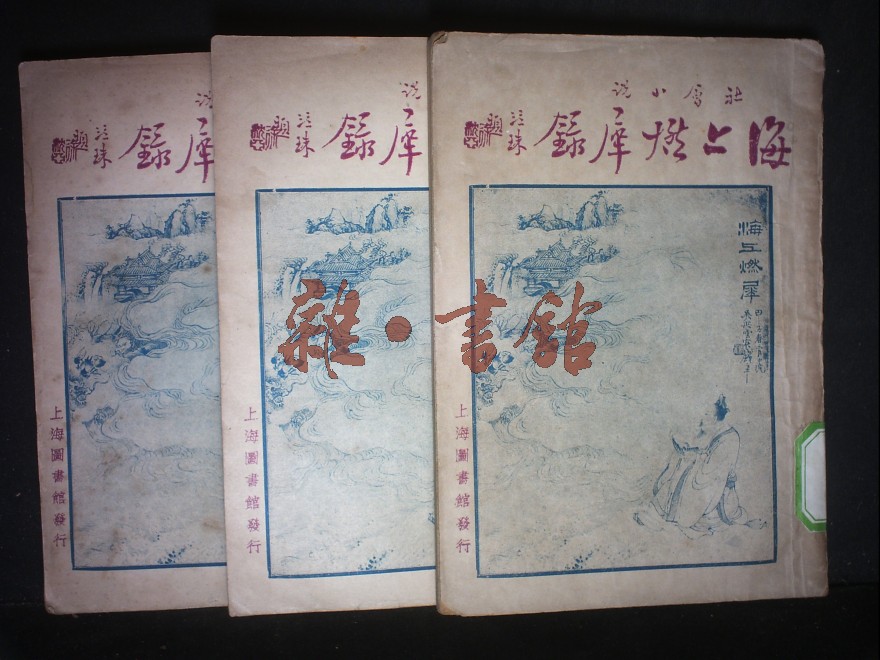 社會小說
海上燃犀錄
海上燃犀
上海圖書館發行
說
犀錄
上海圖書館發行
說
犀錄
上海圖書館發行
雜·書館